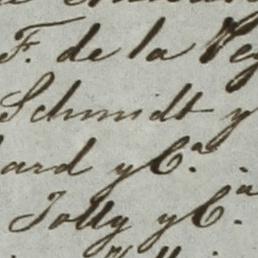 F. de la Veg
Schmidt y
ard y Cª.
Jolly y Cª.